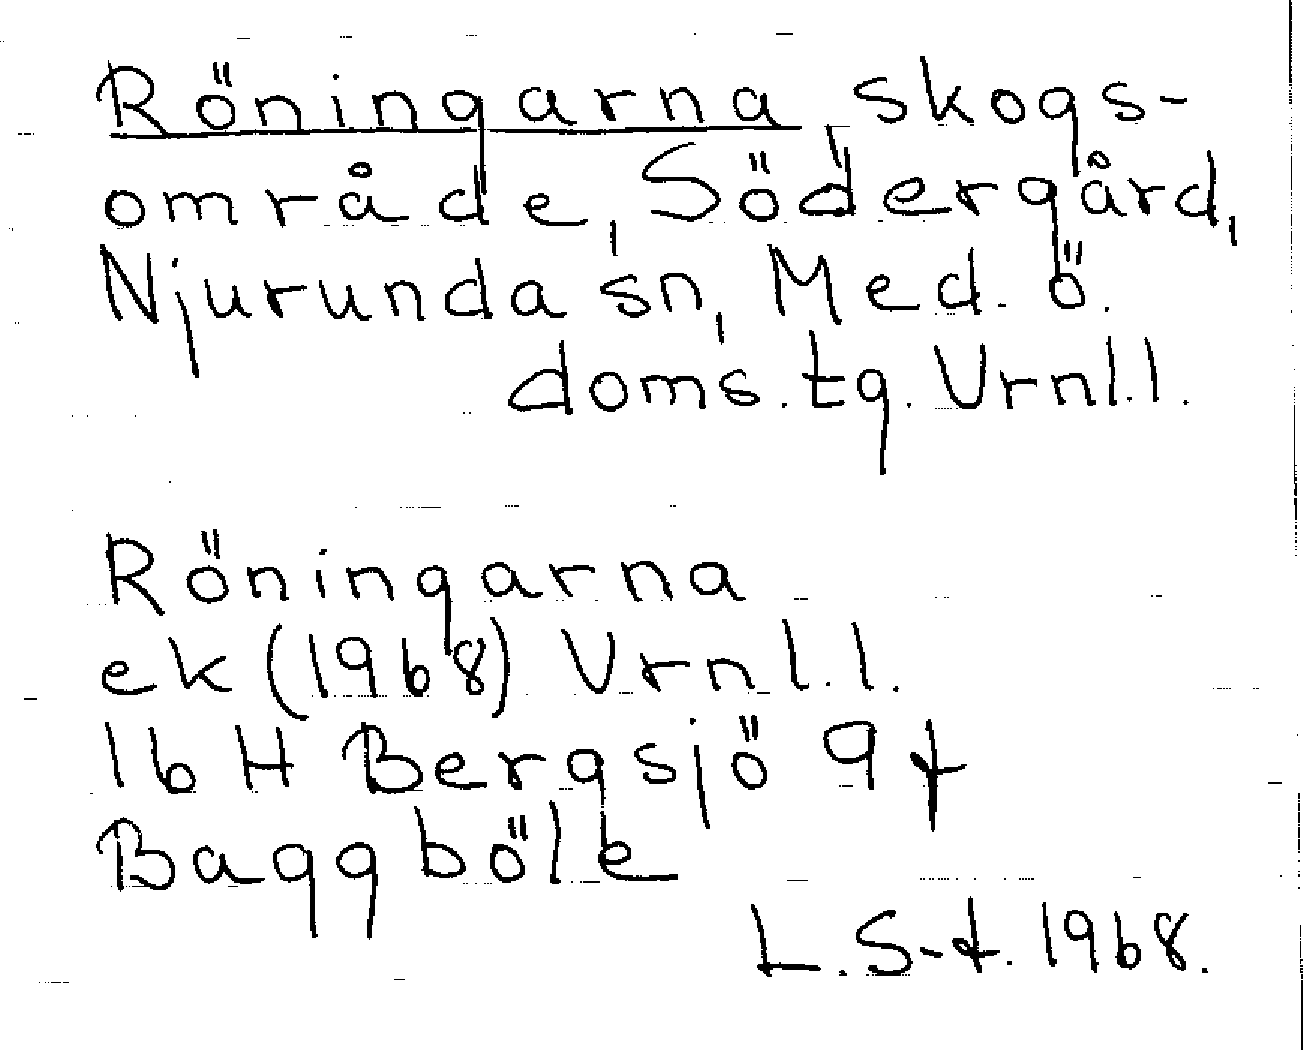 Röningarna skogs-
område, Södergård,
Njurunda sn, Med. ö.
doms. tg. Vrnl.l.
Röningarna
ek (1968) Vrnl.l.
16 H Bergsjö 9f
Baggböle
L. S-t. 1968.